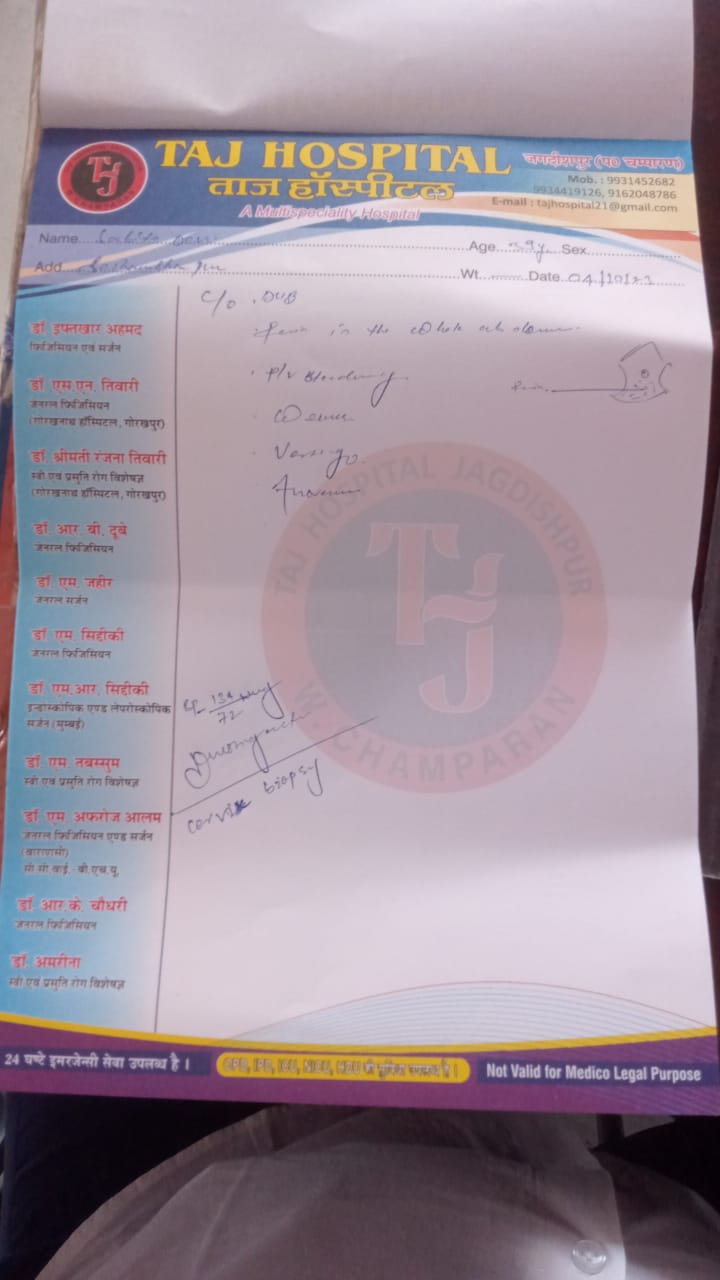 TAJ HOSPITAL
ताज हॉस्पीटल
A Multispeciality Hospital
जगदीशपुर (प० चम्पारण)
Mob. : 9931452682
9934419126, 9162048786
E-mail : tajhospital21@gmail.com
TJ
W. CHAMPARAN
Name
Age 39y Sex
Add
Wt. Date 04/10/23
C/o . DUB
Pain in the whole abdomen
P/V Bleeding
Pain
Vertigo
डॉ इफ्तखार अहमद
फिजिसियन एवं सर्जन
डॉ एस.एन. तिवारी
जनरल फिजिसियन
(गोरखनाथ हॉस्पिटल, गोरखपुर)
डॉ श्रीमती रंजना तिवारी
स्त्री एवं प्रसुति रोग विशेषज्ञ
(गोरखनाथ हॉस्पिटल, गोरखपुर)
डॉ. आर. बी. दूबे
जेनरल फिजिसियन
डॉ. एम. जहीर
जेनरल सर्जन
डॉ. एम. सिद्दीकी
जेनरल फिजिसियन
डॉ. एम.आर. सिद्दीकी
इन्डोस्कोपिक एण्ड लेपरोस्कोपिक
सर्जन (मुम्बई)
डॉ. एम. तबस्सुम
स्त्री एवं प्रसुति रोग विशेषज्ञ
डॉ. एम. अफरोज आलम
जेनरल फिजिसियन एण्ड सर्जन
(वाराणसी)
सी.सी.वाई.- बी.एच.यू.
डॉ. आर.के. चौधरी
जेनरल फिजिसियन
डॉ. अमरीना
स्त्री एवं प्रसुति रोग विशेषज्ञ
TAJ HOSPITAL JAGDISHPUR
TJ
W. CHAMPARAN
BP 134/72
cervix biopsy
24 घण्टे इमरजेन्सी सेवा उपलब्ध है।
OPD, IPD, ICU, NICU, HDU की सुविधा उपलब्ध है।
Not Valid for Medico Legal Purpose